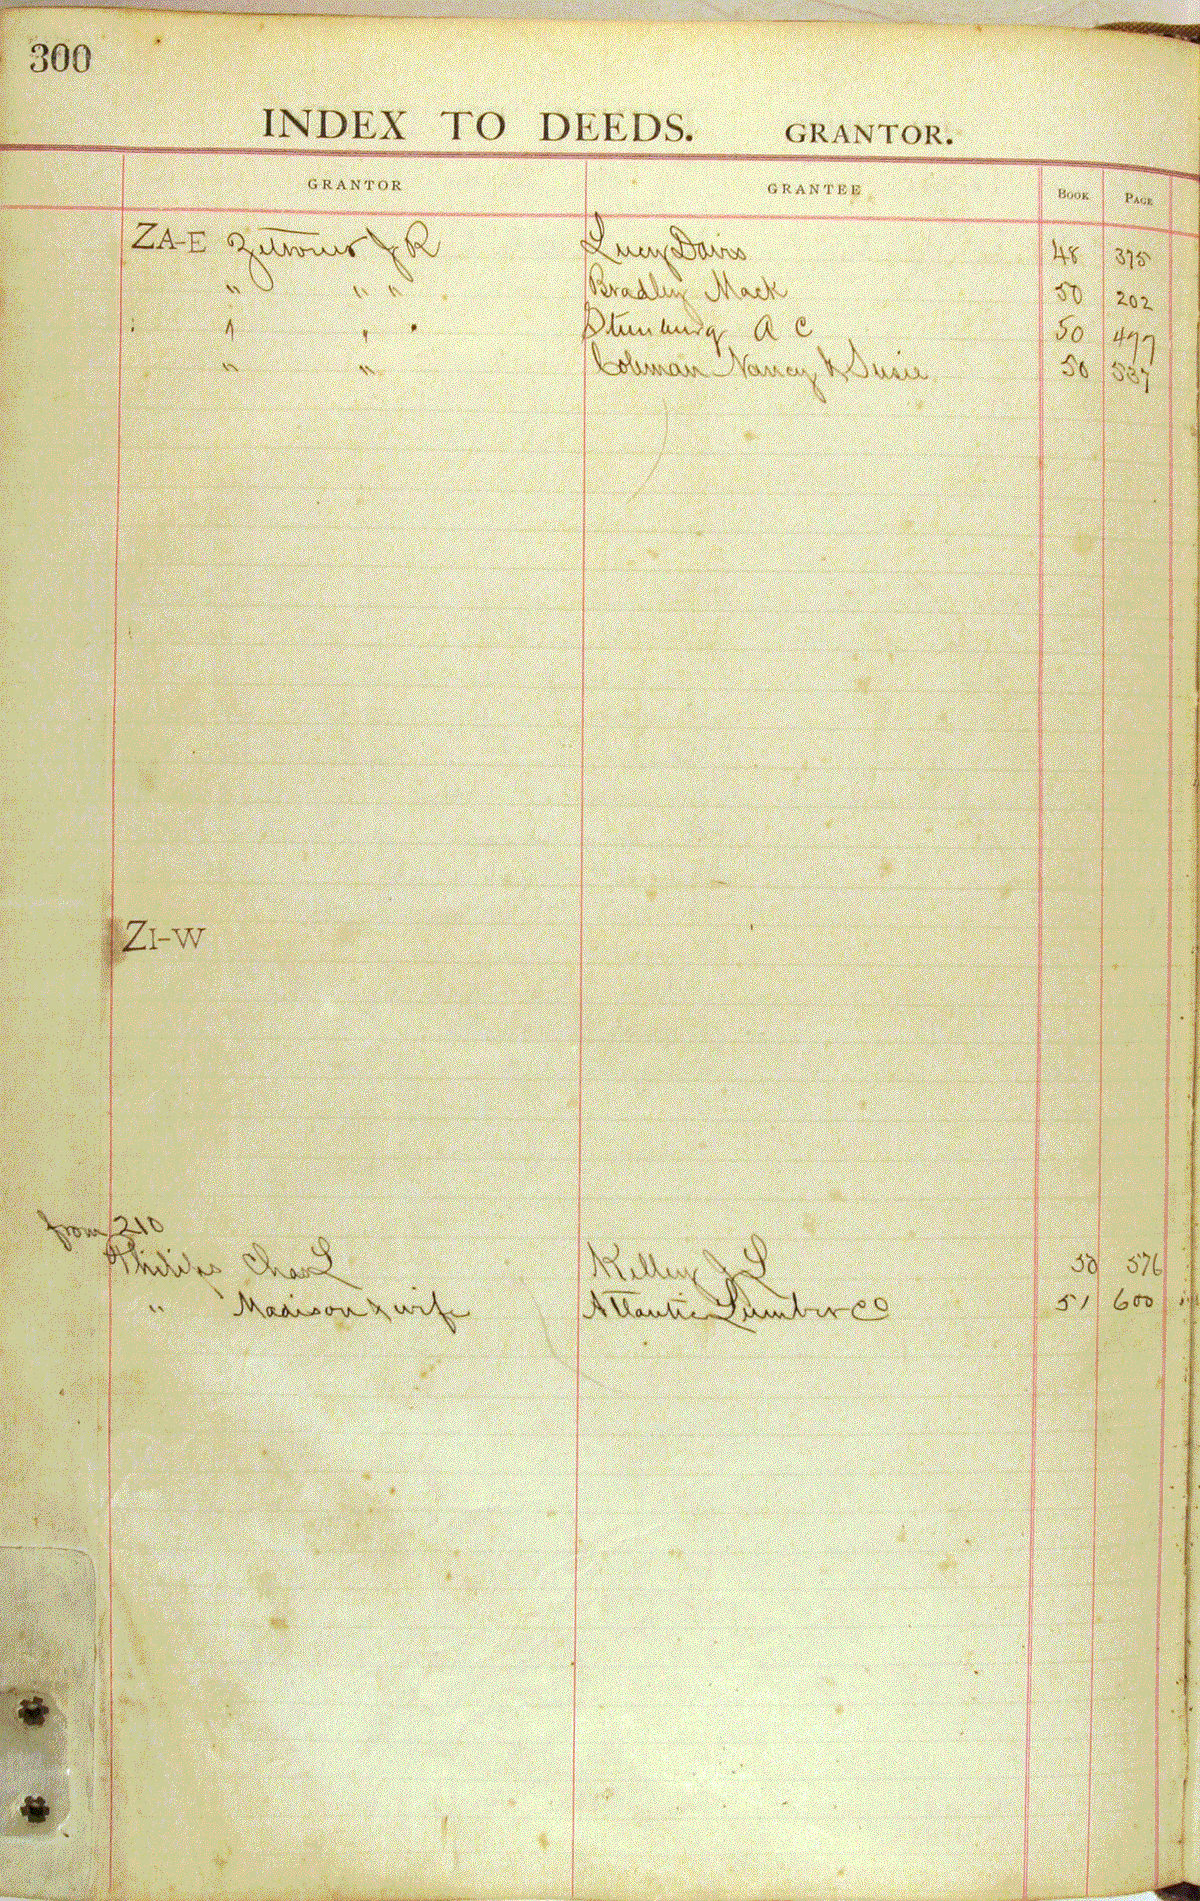 300
INDEX TO DEEDS. GRANTOR.
GRANTOR GRANTEE BOOK PAGE
ZA-E J R Lucy Davis 48 375
" " " Bradley Mack 50 202
" " " A C 50 477
" " Coleman Nancy & Susie 50 537
ZI-W
from 210
Phillips Chas L Kelley J L 50 576
" Madison & wife Atlantic Lumber Co 51 600